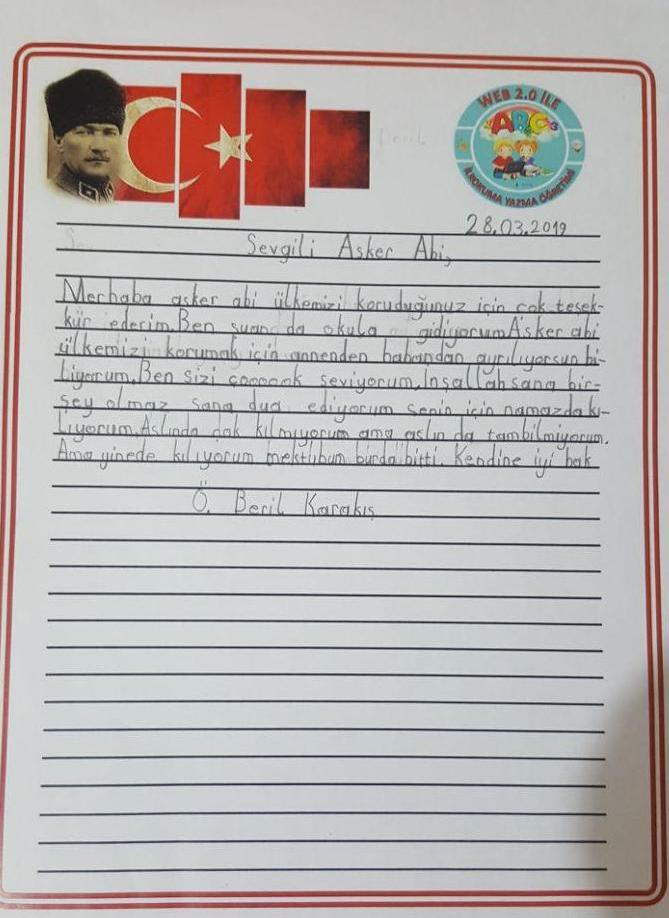 WEB 2.0 İLE
ABC
İLKOKUMA YAZMA ÖĞRETİMİ
28.03.2019
Sevgili Asker Abi,
Merhaba asker abi ülkemizi koruduğunuz için çok teşek-
kür ederim.Ben şuan da okula gidiyorum.Asker abi
ülkemizi korumak için annenden babandan ayrılıyorsun bi-
liyorum.Ben sizi çoooook seviyorum.İnşallah sana bir-
şey olmaz sana dua ediyorum senin için namazda kı-
lıyorum.Aslında çok kılmıyorum ama aslın da tambilmiyorum.
Ama yinede kılıyorum mektubum burda bitti. Kendine iyi bak
Ö. Beril Karakış